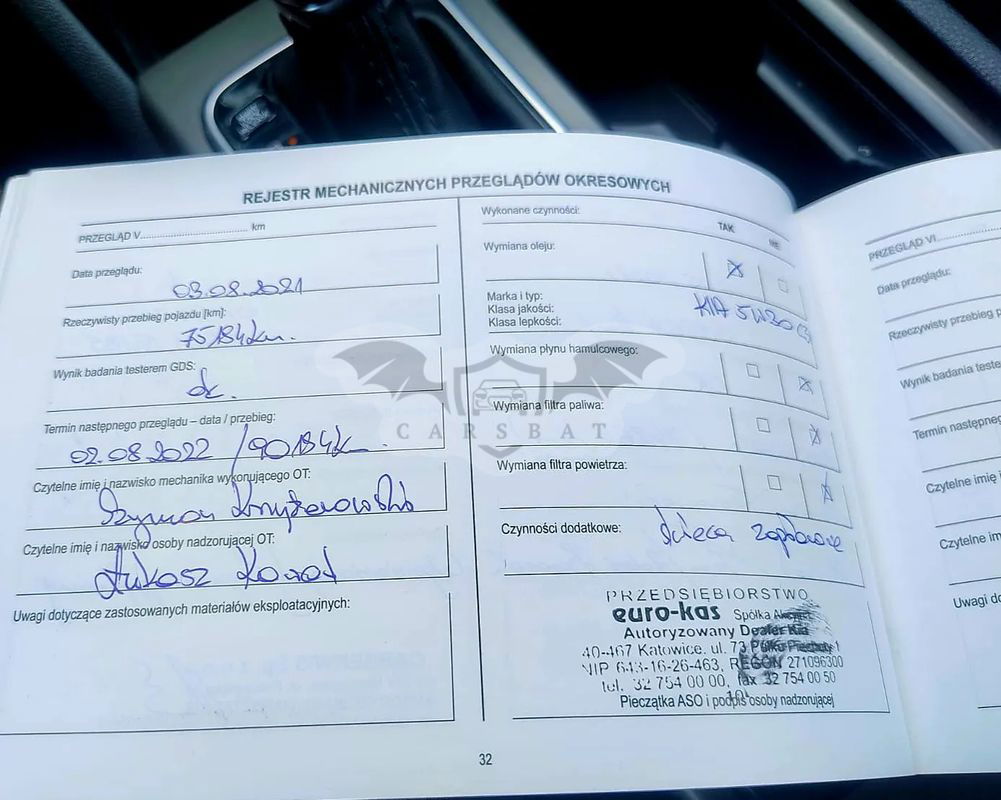 REJESTR MECHANICZNYCH PRZEGLĄDÓW OKRESOWYCH
PRZEGLĄD V........................................ km
Data przeglądu:
03.08.2021
Rzeczywisty przebieg pojazdu [km]:
75184km.
Wynik badania testerem GDS:
Termin następnego przeglądu – data / przebieg:
02.08.2022 / 90184km.
Czytelne imię i nazwisko mechanika wykonującego OT:
Szymon
Czytelne imię i nazwisko osoby nadzorującej OT:
Łukasz
Uwagi dotyczące zastosowanych materiałów eksploatacyjnych:
Wykonane czynności:
TAK NIE
Wymiana oleju:
Marka i typ:
Klasa jakości:
Klasa lepkości:
KIA 5W30 C3
Wymiana płynu hamulcowego:
Wymiana filtra paliwa:
Wymiana filtra powietrza:
Czynności dodatkowe:
świece zapłonowe
PRZEDSIĘBIORSTWO
euro-kas Spółka Akcyjna
Autoryzowany Dealer Kia
40-467 Katowice, ul. 73 Pułku Piechoty 1
NIP 643-16-26-463, REGON 271096300
tel. 32 754 00 00, fax 32 754 00 50
Pieczątka ASO i podpis osoby nadzorującej
32
CARSBAT
PRZEGLĄD VI
Data przeglądu:
Rzeczywisty przebieg
Wynik badania
Termin
Czytelne
Czytelne
Uwagi